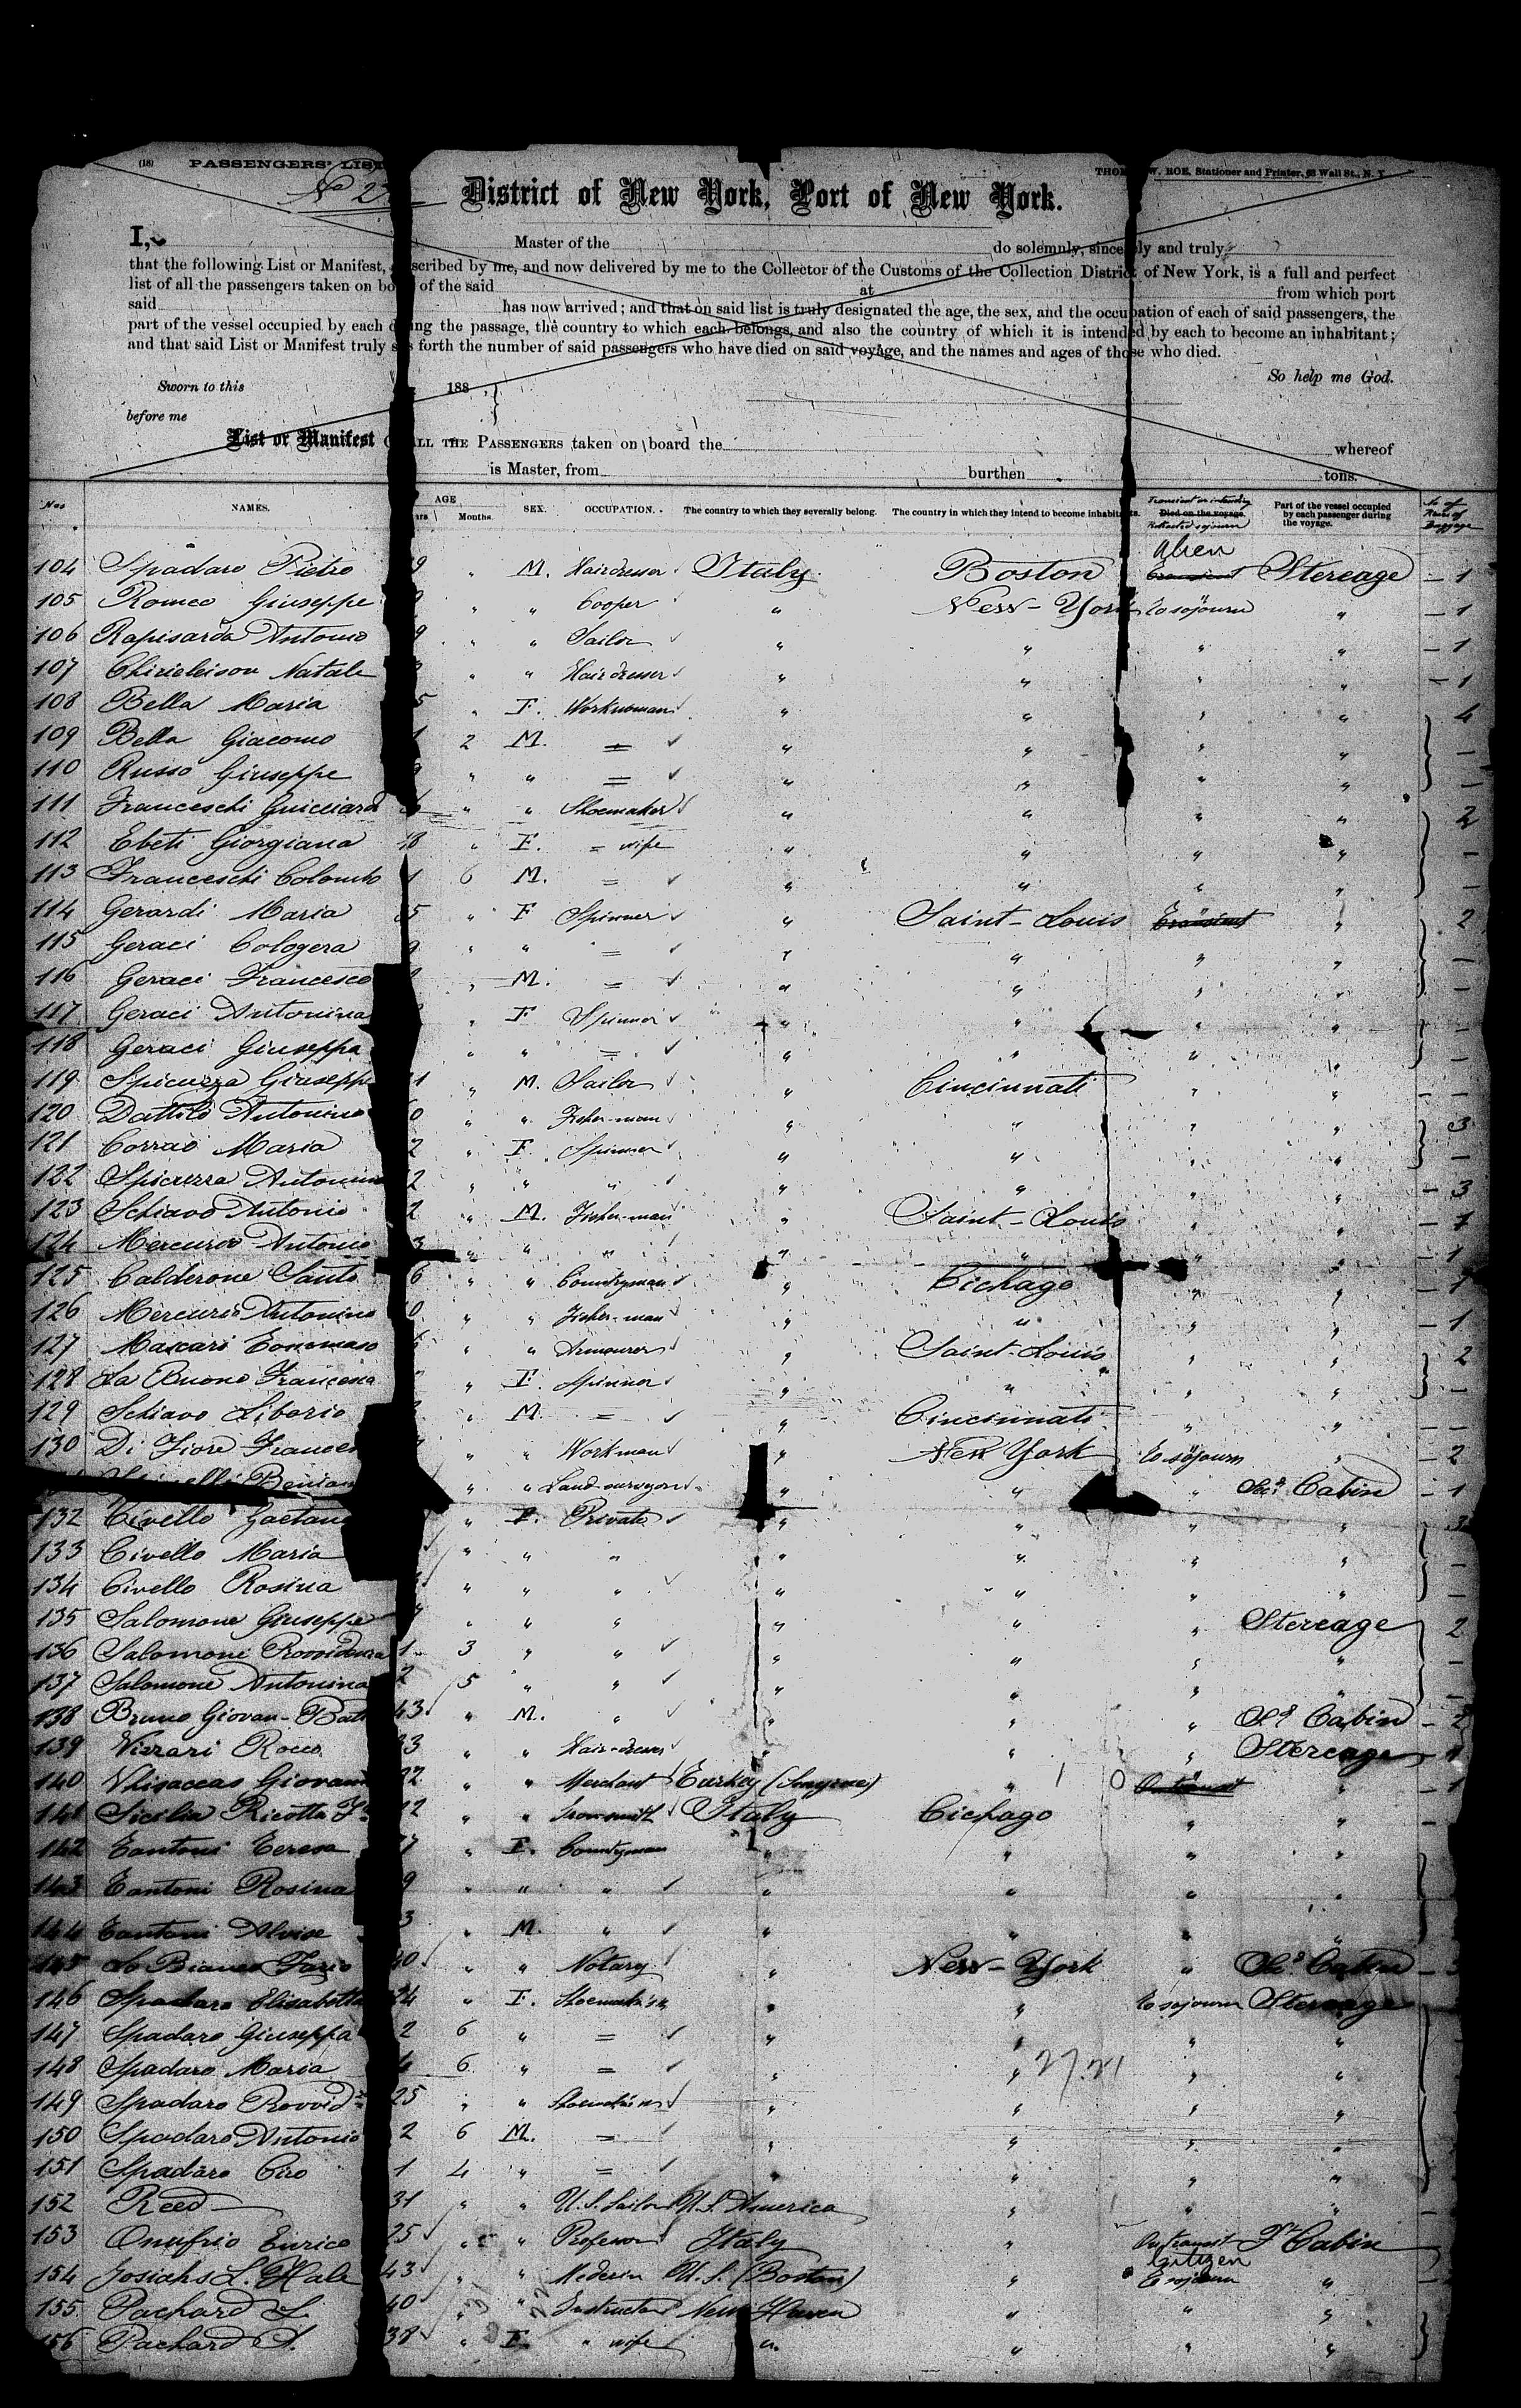 (18) PASSENGERS' LIST
No 22
THOM W. ROE, Stationer and Printer, 68 Wall St., N. Y.
District of New York, Port of New York.
I, Master of the do solemnly, sincerely and truly
that the following List or Manifest, scribed by me, and now delivered by me to the Collector of the Customs of the Collection District of New York, is a full and perfect
list of all the passengers taken on bo of the said at from which port
said has now arrived; and that on said list is truly designated the age, the sex, and the occupation of each of said passengers, the
part of the vessel occupied by each d ing the passage, the country to which each belongs, and also the country of which it is intended by each to become an inhabitant;
and that said List or Manifest truly s s forth the number of said passengers who have died on said voyage, and the names and ages of those who died.
So help me God.
Sworn to this 188
before me
List or Manifest ALL THE PASSENGERS taken on board the whereof
is Master, from burthen tons.
Nos NAMES. AGE ars Months. SEX. OCCUPATION. The country to which they severally belong. The country in which they intend to become inhabitants. Transient or intending Died on the voyage. Protracted sojourn Part of the vessel occupied by each passenger during the voyage. No of Pieces of Baggage
Alien
104 Spadaro Pietro 9 " M. Hairdresser Italy Boston Transient Steerage 1
105 Romeo Giuseppe " " Cooper " New-York To sojourn " 1
106 Rapisarda Antonio 9 " " Sailor " " " " 1
107 Natale " " Hairdresser " " " " 1
108 Bella Maria 5 " F. Workwoman " " " " 4
109 Bella Giacomo 1 2 M. = " " " " –
110 Russo Giuseppe " " = " " " " –
111 Franceschi " " Shoemaker " " " " 2
112 Ebeti Giorgiana 18 " F. = wife " " " " –
113 Franceschi Colombo 1 6 M. = " " " " –
114 Gerardi Maria 35 " F Spinner " Saint-Louis Transient " 2
115 Geraci Cologera 9 " " = " " " " –
116 Geraci Francesco " M. = " " " " –
117 Geraci Antonina " F Spinner " " " " –
118 Geraci Giuseppa " " = " " " " –
119 Spicuzza Giuseppe 1 " M. Sailor " Cincinnati " " –
120 Dattilo Antonino 0 " " Fisher-man " " " " 3
121 Corrao Maria 2 " F. Spinner " " " " –
122 Spicuzza Antonina 2 " " " " " " " 3
123 Schiavo Antonio 2 " M. Fisher-man " Saint-Louis " " 1
124 Mercurio Antonio 3 " " " " " " " 1
125 Calderone Santo 6 " " Countryman " Cichago " " 1
126 Mercurio Antonino 0 " " Fisher-man " " " " 1
127 Mascari Tommaso " " Armourer " Saint-Louis " " 2
128 La Buono Francesca " F. Spinner " " " " –
129 Schiavo Liborio " M. = " Cincinnati " " –
130 Di Fiore Frances " " Workman " New York To sojourn " 2
Beniam " " Land-surveyor " " " Sec. Cabin 1
132 Civello Gaetana " F. Private " " " " 3
133 Civello Maria " " " " " " " –
134 Civello Rosina " " " " " " " –
135 Salomone Giuseppe " " " " " " Steerage 2
136 Salomone Provvidenza 1 3 " " " " " " –
137 Salomone Antonina 2 5 " " " " " " –
138 Bruno Giovan-Batt 43 " M. " " " " Cabin 2
139 Vizzari Rocco 33 " " Hair-dresser " " " Steerage 1
140 Giovanni 22 " " Merchant Turkey (Smyrne) " " 1
141 Sicilia Ricotta 22 " " Ironsmith Italy Cichago " " –
142 Tantoni Teresa 7 " F. Countryman " " " " –
143 Tantoni Rosina 9 " " " " " " " –
144 Tantoni Aloise 3 " M. " " " " " –
145 Lo Bianco 40 " " Notary " New-York " Sec. Cabin 3
146 Spadaro Elisabetta 24 " F. Shoemaker " " To sojourn Steerage
147 Spadaro Giuseppa 2 6 " = " " " " –
148 Spadaro Maria 4 6 " = " " " " –
149 Spadaro Provvid 25 " " " " " " –
150 Spadaro Antonio 2 6 M. = " " " " –
151 Spadaro Ciro 1 4 " = " " " " –
152 Reed 31 " " U.S. Sailor U.S. America " " "
153 Onufrio Enrico 25 " " Professor Italy " On transit Cabin
Citizen
154 Josiahs L. Hale 43 " " Medecin U.S. (Boston) " To sojourn " –
155 Pachard L. 40 " " Instructor New Haven " " "
156 Pachard S. 38 " F. " wife " " " "